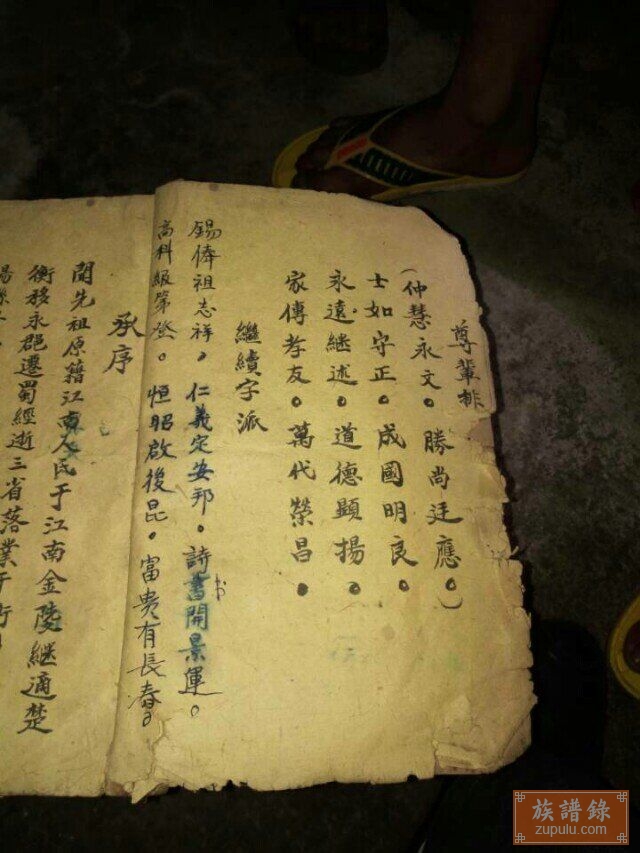 尊輩排
（仲慧永文。勝尚廷應。）
士如守正。成國明良。
永遠繼述。道德顯揚。
家傳孝友。萬代榮昌。
繼續字派
錫俸祖志祥，仁義定安邦。詩書開景運。
高科級第登。恒昭啟後昆。富貴有長春。
承序
聞先祖原籍江南人氏于江南金陵繼適楚
衡移永郡遷蜀經逝三省落業于
陽縣
族譜錄
zupulu.com